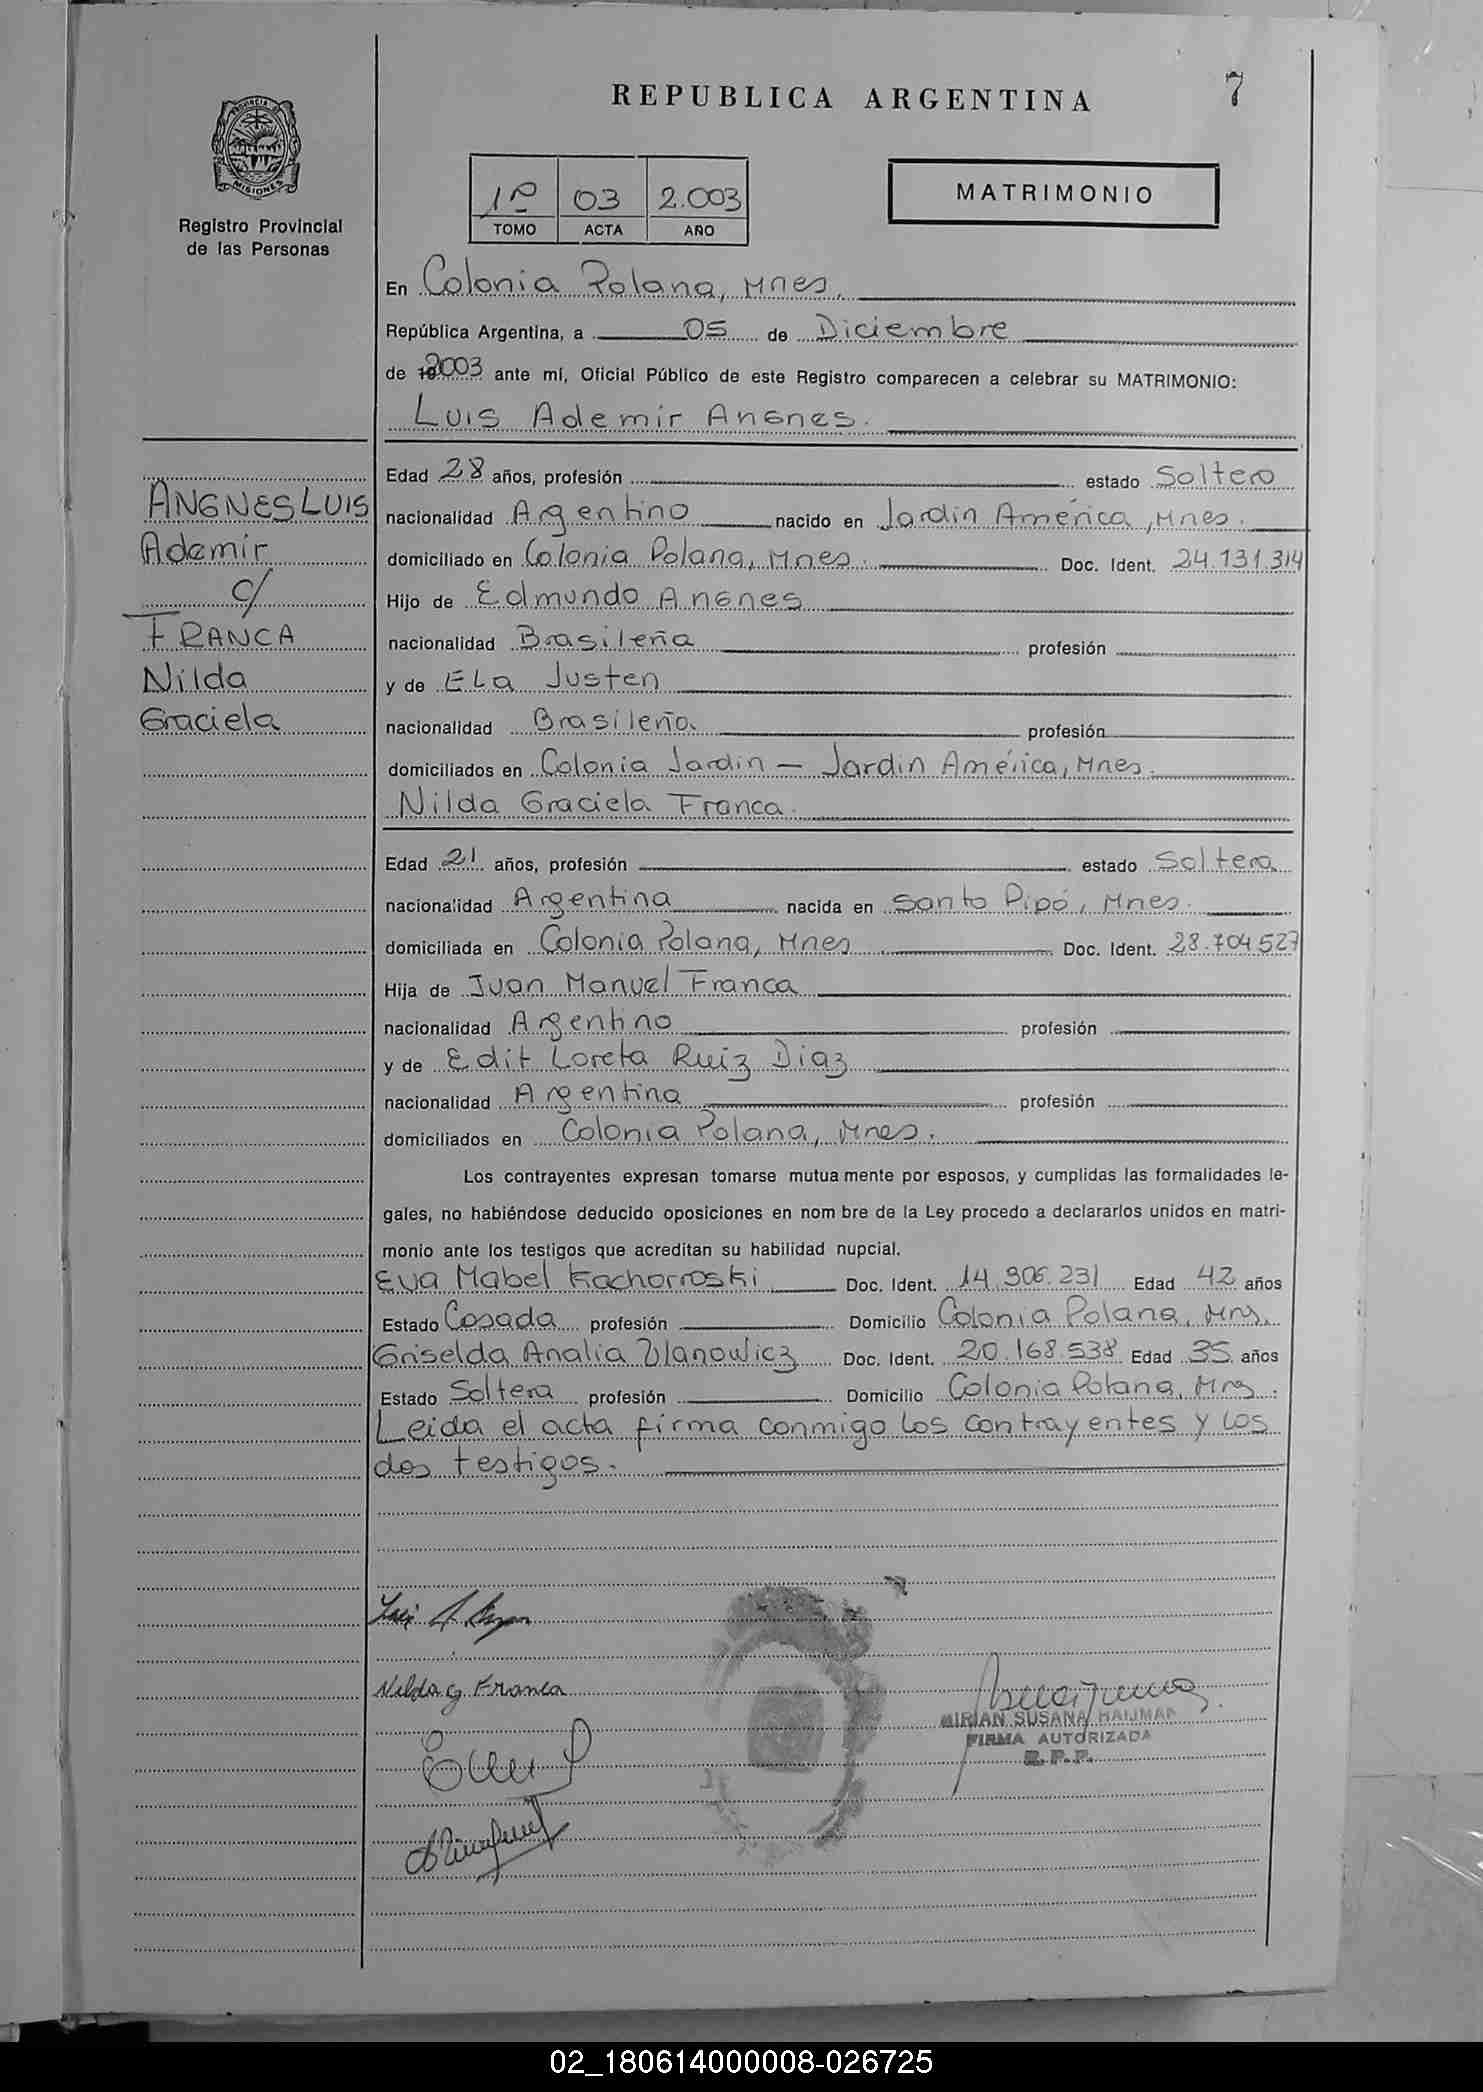 REPUBLICA ARGENTINA
7
PROVINCIA
MISIONES
Registro Provincial
de las Personas
1º 03 2.003
TOMO ACTA AÑO
MATRIMONIO
En Colonia Polana, Mnes.
República Argentina, a 05 de Diciembre
de 2003 ante mí, Oficial Público de este Registro comparecen a celebrar su MATRIMONIO:
Luis Ademir Angnes.
ANGNES LUIS
Ademir
c/
FRANCA
Nilda
Graciela
Edad 28 años, profesión estado Soltero
nacionalidad Argentino nacido en Jardin América, Mnes.
domiciliado en Colonia Polana, Mnes. Doc. Ident. 24.131.314
Hijo de Edmundo Angnes
nacionalidad Brasileña profesión
y de Ela Justen
nacionalidad Brasileña profesión
domiciliados en Colonia Jardin - Jardin América, Mnes.
Nilda Graciela Franca.
Edad 21 años, profesión estado Soltera
nacionalidad Argentina nacida en Santo Pipó, Mnes.
domiciliada en Colonia Polana, Mnes Doc. Ident. 28.704.527
Hija de Juan Manuel Franca
nacionalidad Argentino profesión
y de Edit Loreta Ruiz Diaz
nacionalidad Argentina profesión
domiciliados en Colonia Polana, Mnes.
Los contrayentes expresan tomarse mutua mente por esposos, y cumplidas las formalidades le-
gales, no habiéndose deducido oposiciones en nom bre de la Ley procedo a declararlos unidos en matri-
monio ante los testigos que acreditan su habilidad nupcial.
Eva Mabel Kachorroski Doc. Ident. 14.906.231 Edad 42 años
Estado Casada profesión Domicilio Colonia Polana, Mns.
Griselda Analia Ulanowicz Doc. Ident. 20.168.538 Edad 35 años
Estado Soltera profesión Domicilio Colonia Polana, Mns.
Leida el acta firma conmigo los contrayentes y los
dos testigos.
Nilda G Franca
MIRIAN SUSANA HAIJMAN
FIRMA AUTORIZADA
R. P. P.
02_180614000008-026725